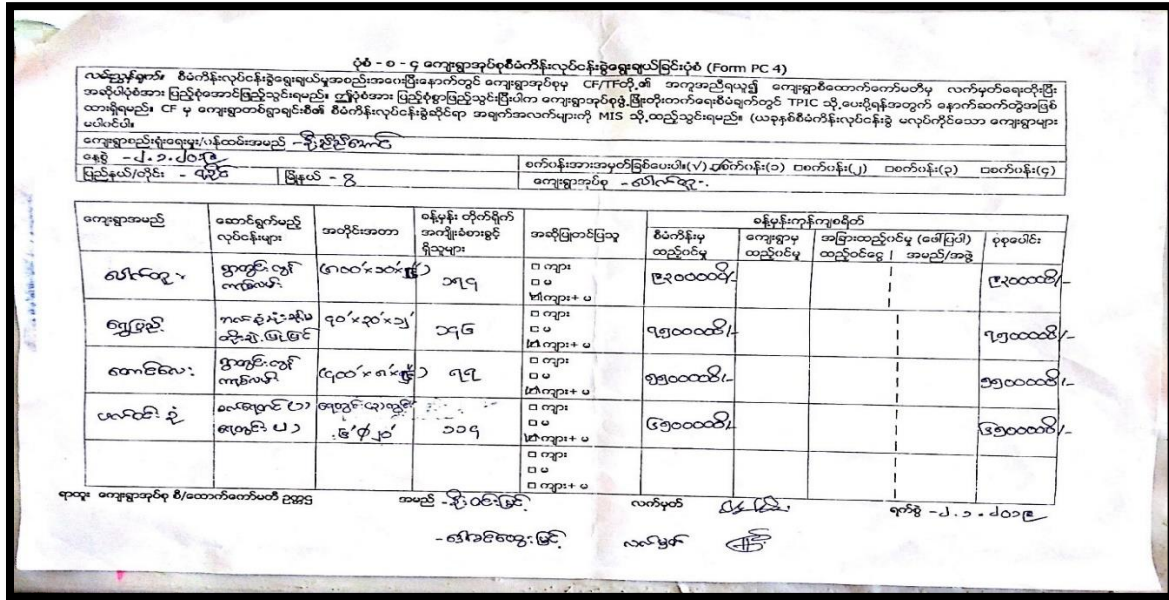 ပုံစံ - စ - ၄ ကျေးရွာအုပ်စုစီမံကိန်းလုပ်ငန်းခွဲရွေးချယ်ခြင်းပုံစံ (Form PC 4)
လမ်းညွှန်ချက်။ စီမံကိန်းလုပ်ငန်းခွဲရွေးချယ်မှုအစည်းအဝေးပြီးနောက်တွင် ကျေးရွာအုပ်စုမှ CF/TFတို့၏ အကူအညီရယူ၍ ကျေးရွာစီထောက်ကော်မတီမှ လက်မှတ်ရေးထိုးပြီး
အဆိုပါပုံစံအား ပြည့်စုံအောင်ဖြည့်သွင်းရမည်။ ဤပုံစံအား ပြည့်စုံစွာဖြည့်သွင်းပြီးပါက ကျေးရွာအုပ်စုဖွံ့ဖြိုးတိုးတက်ရေးစီမံချက်တွင် TPIC သို့ ပေးပို့ရန်အတွက် နောက်ဆက်တွဲအဖြစ်
ထားရှိရမည်။ CF မှ ကျေးရွာတစ်ရွာချင်းစီ၏ စီမံကိန်းလုပ်ငန်းခွဲဆိုင်ရာ အချက်အလက်များကို MIS သို့ ထည့်သွင်းရမည်။ (ယခုနှစ်စီမံကိန်းလုပ်ငန်းခွဲ မလုပ်ကိုင်သော ကျေးရွာများ
မပါဝင်ပါ။
ကျေးရွာစည်းရုံးရေးမှူး/ဝန်ထမ်းအမည် - ဦးညီညီအောင်
နေ့စွဲ - ၂.၁.၂၀၁၉ စက်ဝန်းအားအမှတ်ခြစ်ပေးပါ။(√) ☑စက်ဝန်း(၁) □စက်ဝန်း(၂) □စက်ဝန်း(၃) □စက်ဝန်း(၄)
ပြည်နယ်/တိုင်း - မြို့နယ် - ကျေးရွာအုပ်စု -
ကျေးရွာအမည် ဆောင်ရွက်မည့် လုပ်ငန်းများ အတိုင်းအတာ ခန့်မှန်း တိုက်ရိုက် အကျိုးခံစားခွင့် ရှိသူများ အဆိုပြုတင်ပြသူ ခန့်မှန်းကုန်ကျစရိတ်
စီမံကိန်းမှ ထည့်ဝင်မှု ကျေးရွာမှ ထည့်ဝင်မှု အခြားထည့်ဝင်မှု (ဖော်ပြပါ) ထည့်ဝင်ငွေ | အမည်/အဖွဲ့ စုစုပေါင်း
ရွာတွင်းကွန် ကရစ်လမ်း ၁၅၄ □ ကျား □ မ ☑ကျား+ မ
ရွှေပြည် ၇၀'×၃၀'×၁၂' ၁၇၆ □ ကျား □ မ ☑ကျား+ မ ၇၅၀၀၀၀၀ိ/- ၇၅၀၀၀၀၀ိ/-
တောင်လေး ရွာတွင်းကွန် ကရစ်လမ်း ၇၇ □ ကျား □ မ ☑ကျား+ မ ၅၅၀၀၀၀၀ိ/- ၅၅၀၀၀၀၀ိ/-
ရေတွင်း ၁၁၄ □ ကျား □ မ ☑ကျား+ မ ၆၅၀၀၀၀၀ိ/- ၆၅၀၀၀၀၀ိ/-
□ ကျား □ မ □ ကျား+ မ
ရာထူး ကျေးရွာအုပ်စု စီ/ထောက်ကော်မတီ ဥက္ကဋ္ဌ အမည် - ဦးဝင်းမြင့် လက်မှတ် ရက်စွဲ - ၂.၁.၂၀၁၉
- ဒေါ်ခင်ထွေးမြင့် လက်မှတ်